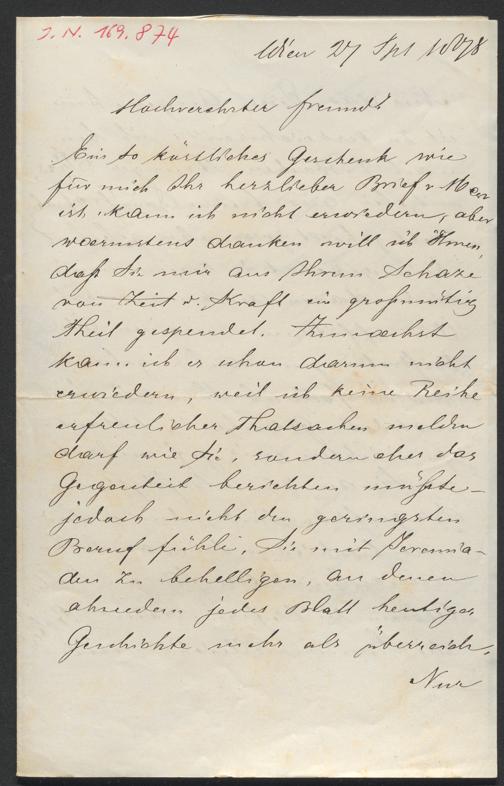 J. N. 169.874
Wien 27 Spt 1878
Hochverehrter Freund!
Ein so köstliches Geschenk wie
für mich Ihr herzlieber Brief v.
ist, kann ich nicht erwiedern, aber
waermstens danken will ich Ihnen,
daß Sie mir aus Ihrem Schaze
von Zeit u. Kraft ein großmütig
Theil gespendet. Zunaechst
kann ich es schon darum nicht
erwiedern, weil ich keine Reihe
erfreulicher Thatsachen melden
darf wie Sie, sondern eher das
Gegenteil berichten müßte –
jedoch nicht den geringsten
Beruf fühle, Sie mit Jeremia-
den zu behelligen, an denen
ohnedem jedes Blatt heutiger
Geschichte mehr als überreich.
Nur